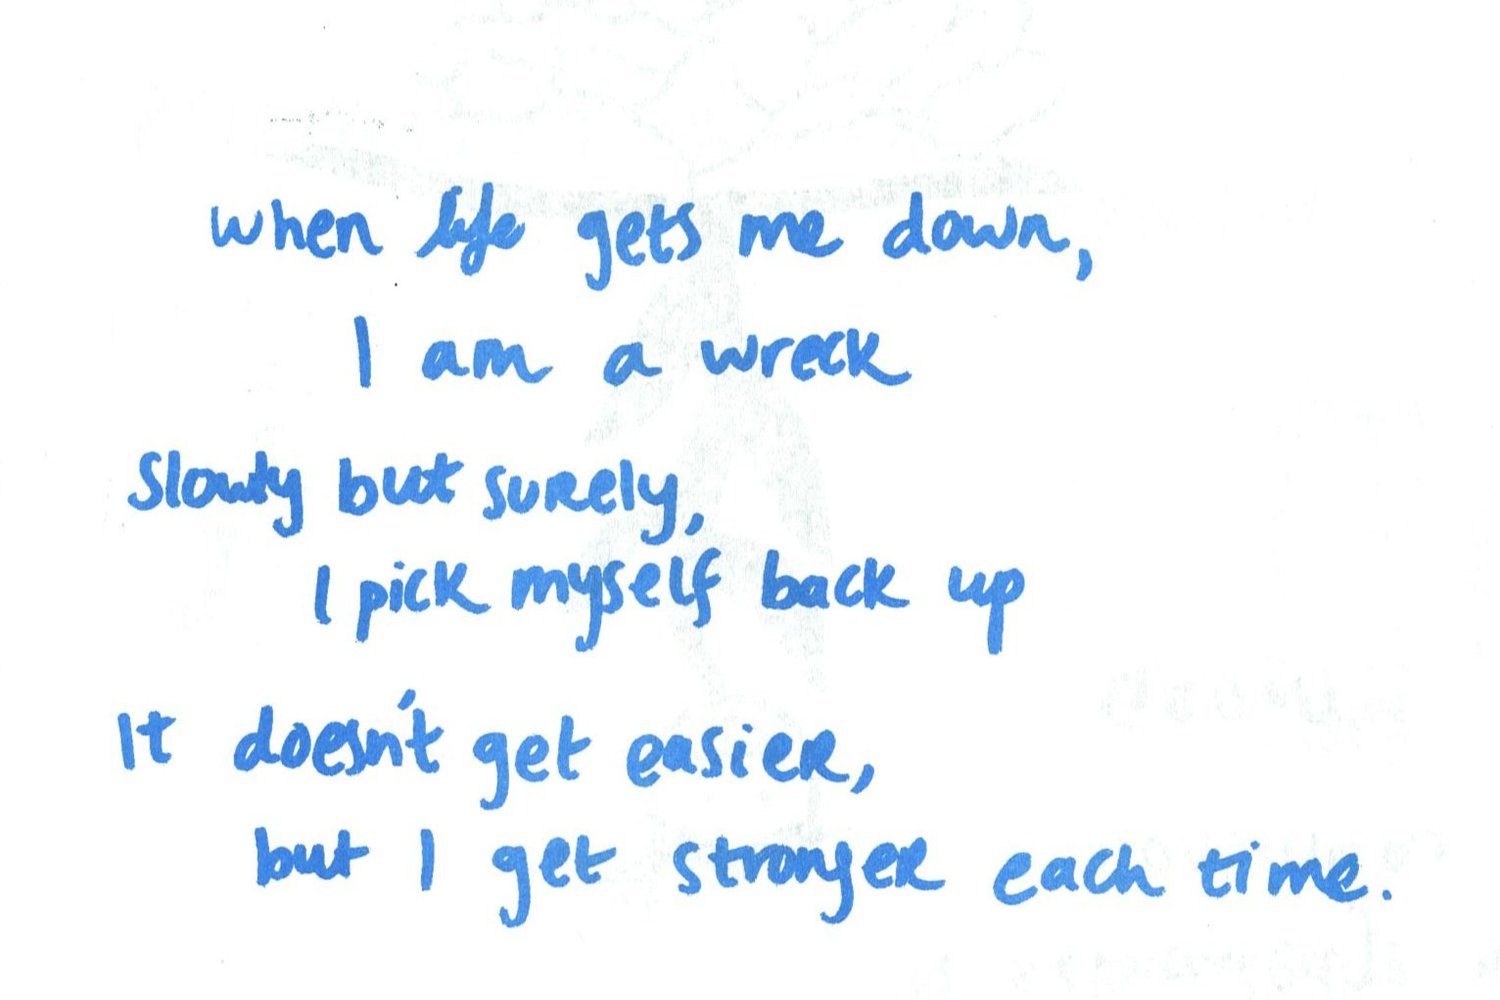 when life gets me down,
I am a wreck
Slowly but surely,
I pick myself back up
It doesn't get easier,
but I get stronger each time.